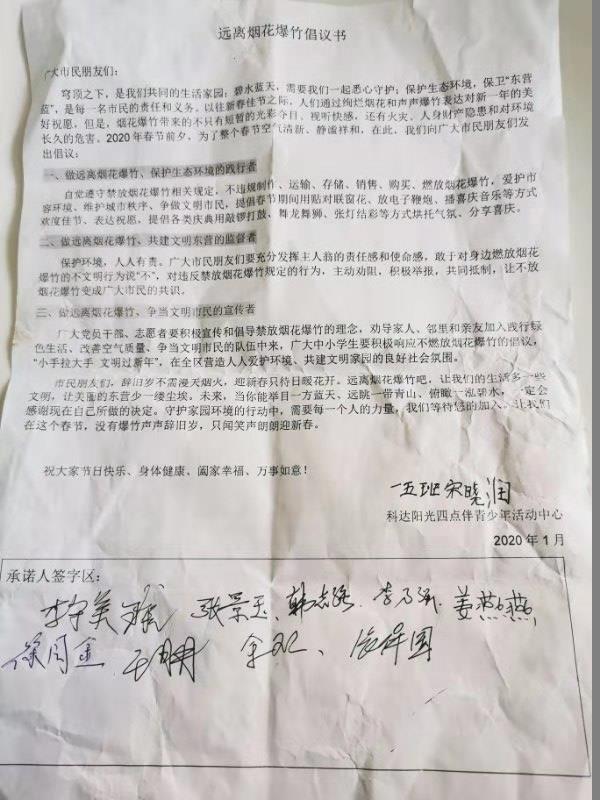 远离烟花爆竹倡议书
广大市民朋友们：
穹顶之下，是我们共同的生活家园；碧水蓝天，需要我们一起悉心守护；保护生态环境，保卫“东营
蓝”，是每一名市民的责任和义务。以往新春佳节之际，人们通过绚烂烟花和声声爆竹表达对新一年的美
好祝愿，但是，烟花爆竹带来的不只有短暂的光彩夺目、视听快感，还有火灾、人身财产隐患和对环境
长久的危害。2020年春节前夕，为了整个春节空气清新、静谧祥和，在此，我们向广大市民朋友们发
出倡议：
一、做远离烟花爆竹、保护生态环境的践行者
自觉遵守禁放烟花爆竹相关规定，不违规制作、运输、存储、销售、购买、燃放烟花爆竹，爱护市
容环境、维护城市秩序、争做文明市民，提倡春节期间用贴对联窗花、放电子鞭炮、播喜庆音乐等方式
欢度佳节、表达祝愿，提倡各类庆典用敲锣打鼓、舞龙舞狮、张灯结彩等方式烘托气氛、分享喜庆。
二、做远离烟花爆竹、共建文明东营的监督者
保护环境，人人有责。广大市民朋友们要充分发挥主人翁的责任感和使命感，敢于对身边燃放烟花
爆竹的不文明行为说“不”，对违反禁放烟花爆竹规定的行为，主动劝阻，积极举报，共同抵制，让不放
烟花爆竹变成广大市民的共识。
三、做远离烟花爆竹、争当文明市民的宣传者
广大党员干部、志愿者要积极宣传和倡导禁放烟花爆竹的理念，劝导家人、邻里和亲友加入践行绿
色生活、改善空气质量、争当文明市民的队伍中来，广大中小学生要积极响应不燃放烟花爆竹的倡议，
“小手拉大手 文明过新年”，在全区营造人人爱护环境、共建文明家园的良好社会氛围。
市民朋友们，辞旧岁不需漫天烟火，迎新春只待日暖花开。远离烟花爆竹吧，让我们的生活多一些
文明，让美丽的东营少一缕尘埃。未来，当你能举目一方蓝天、远眺一带青山、俯瞰一泓碧水，一定会
感谢现在自己所做的决定。守护家园环境的行动中，需要每一个人的力量，我们等待您的加入。让我们
在这个春节，没有爆竹声声辞旧岁，只闻笑声朗朗迎新春。
祝大家节日快乐、身体健康、阖家幸福、万事如意！
一五班宋晓润
科达阳光四点伴青少年活动中心
2020年1月
承诺人签字区：
张景玉、韩志强、姜燕燕